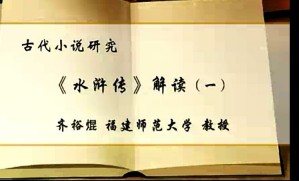 古代小说研究
《水浒传》解读（一）
齐裕焜 福建师范大学 教授